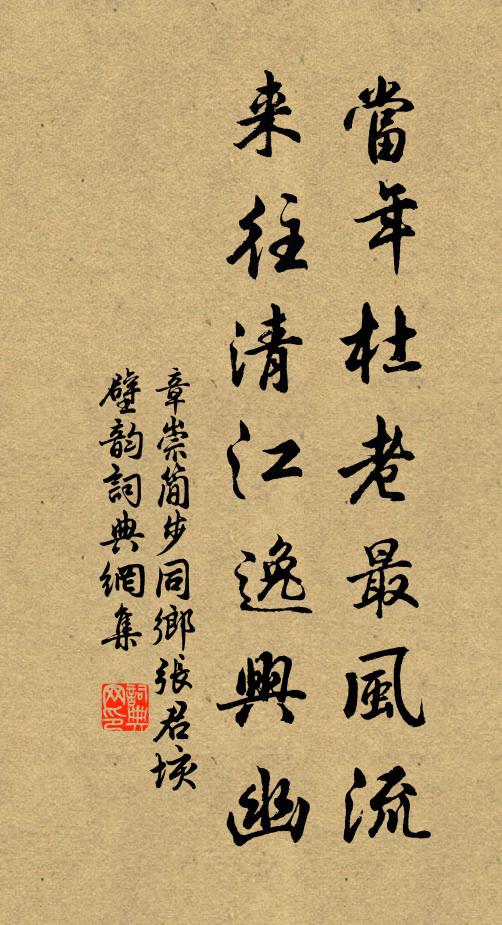 當年杜老最風流
来往清江逸興幽
章崇簡步同鄉張君垓
壁韵詞典網集
詞典网印